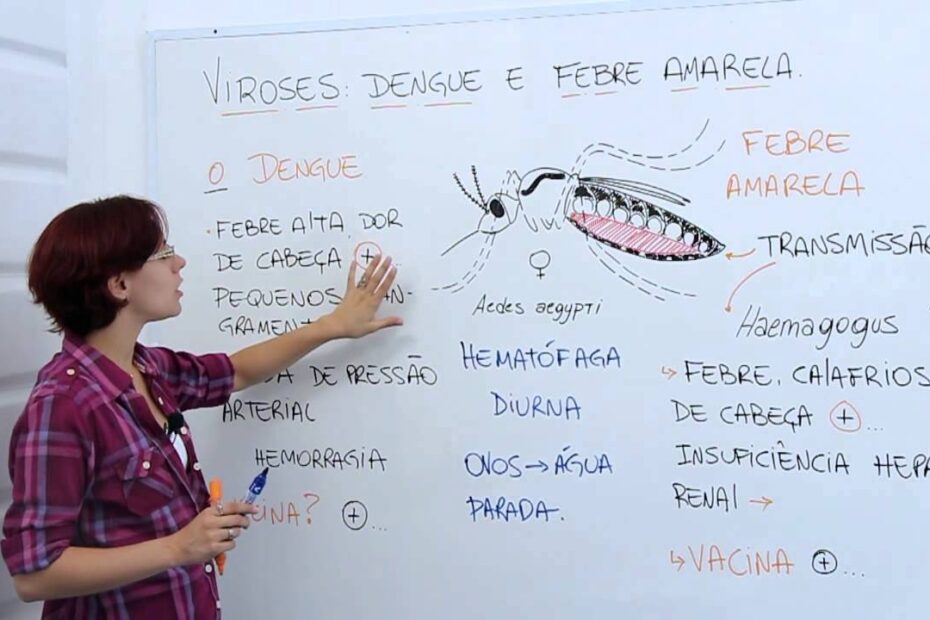 VIROSES: DENGUE E FEBRE AMARELA.
O DENGUE
· FEBRE ALTA, DOR
DE CABEÇA + ...
PEQUENOS
DE PRESSÃO
ARTERIAL
HEMORRAGIA
+ ...
♀
Aedes aegypti
HEMATÓFAGA
DIURNA
OVOS → ÁGUA
PARADA.
FEBRE
AMARELA
TRANSMISSÃO
Haemagogus
↳ FEBRE, CALAFRIOS
DE CABEÇA + ...
INSUFICIÊNCIA
RENAL →
↳ VACINA + ...